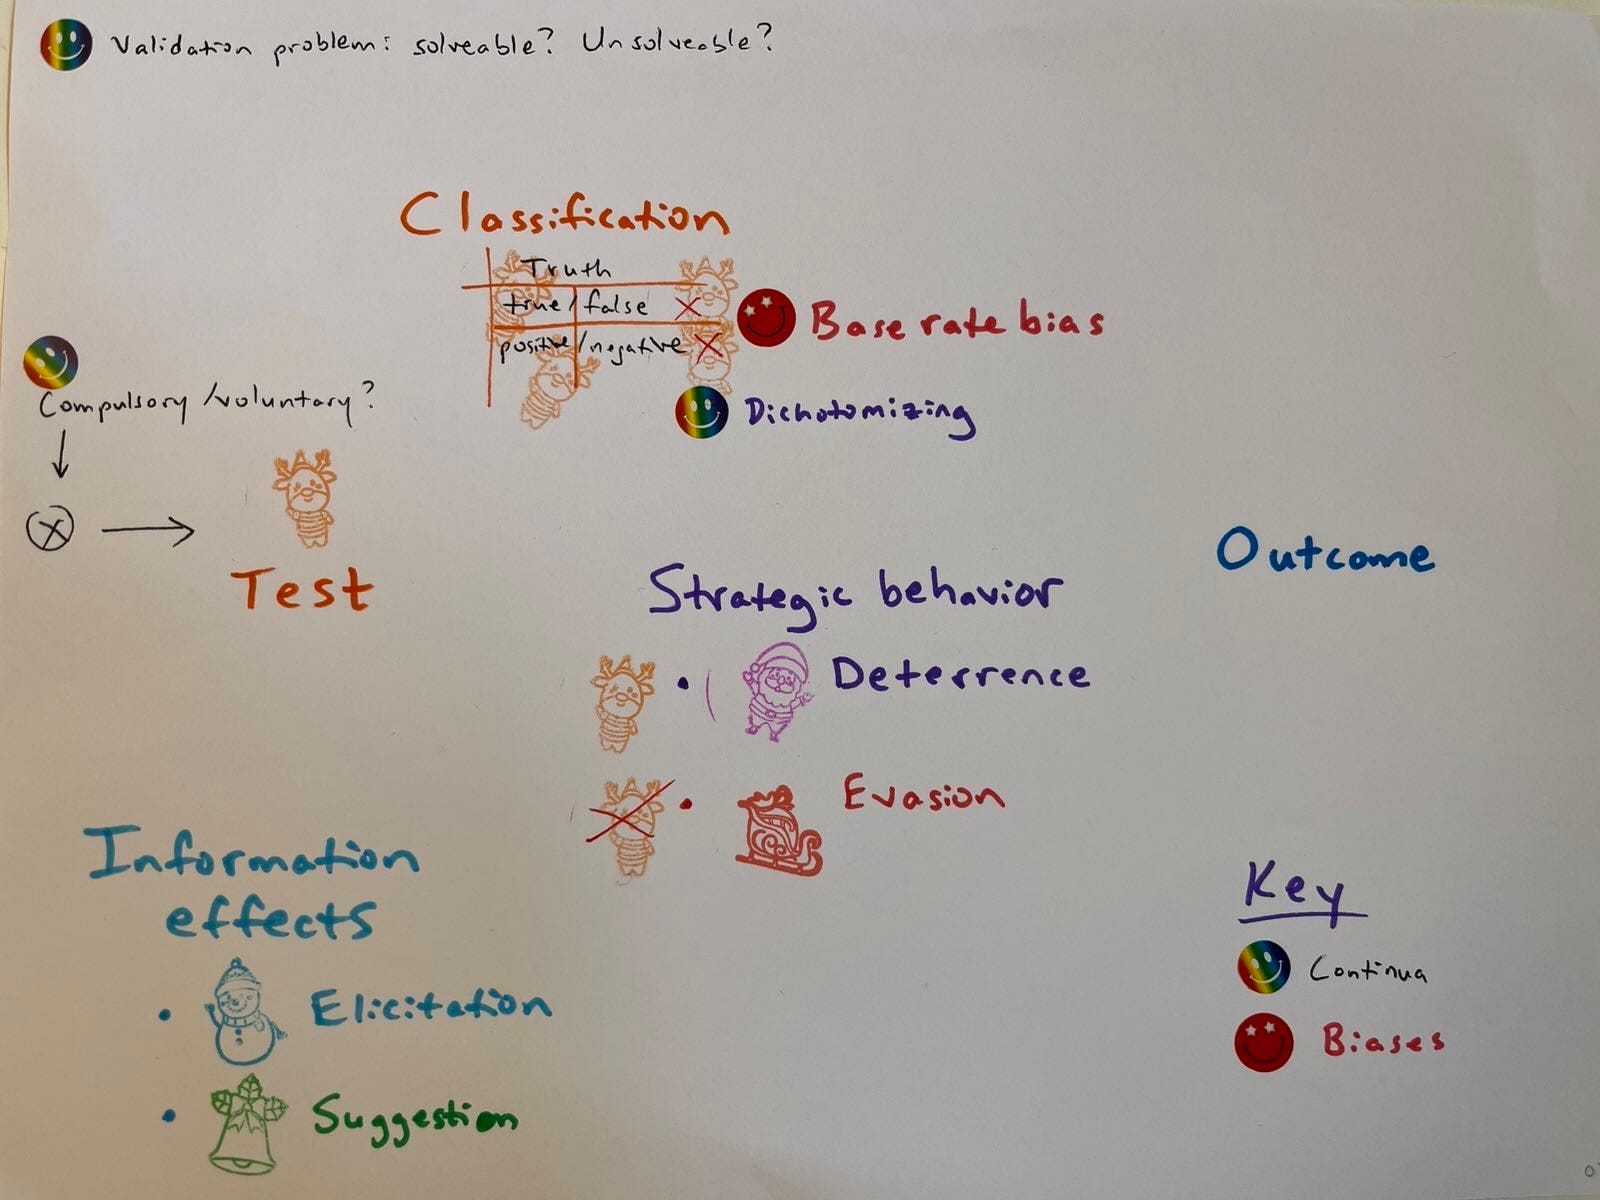 Validation problem: solveable? Unsolveable?
Classification
Truth
true/false X
positive/negative X
Base rate bias
Dichotomizing
Compulsory/voluntary?
Test
Outcome
Strategic behavior
• Deterrence
• Evasion
Information
effects
• Elicitation
• Suggestion
Key
Continua
Biases